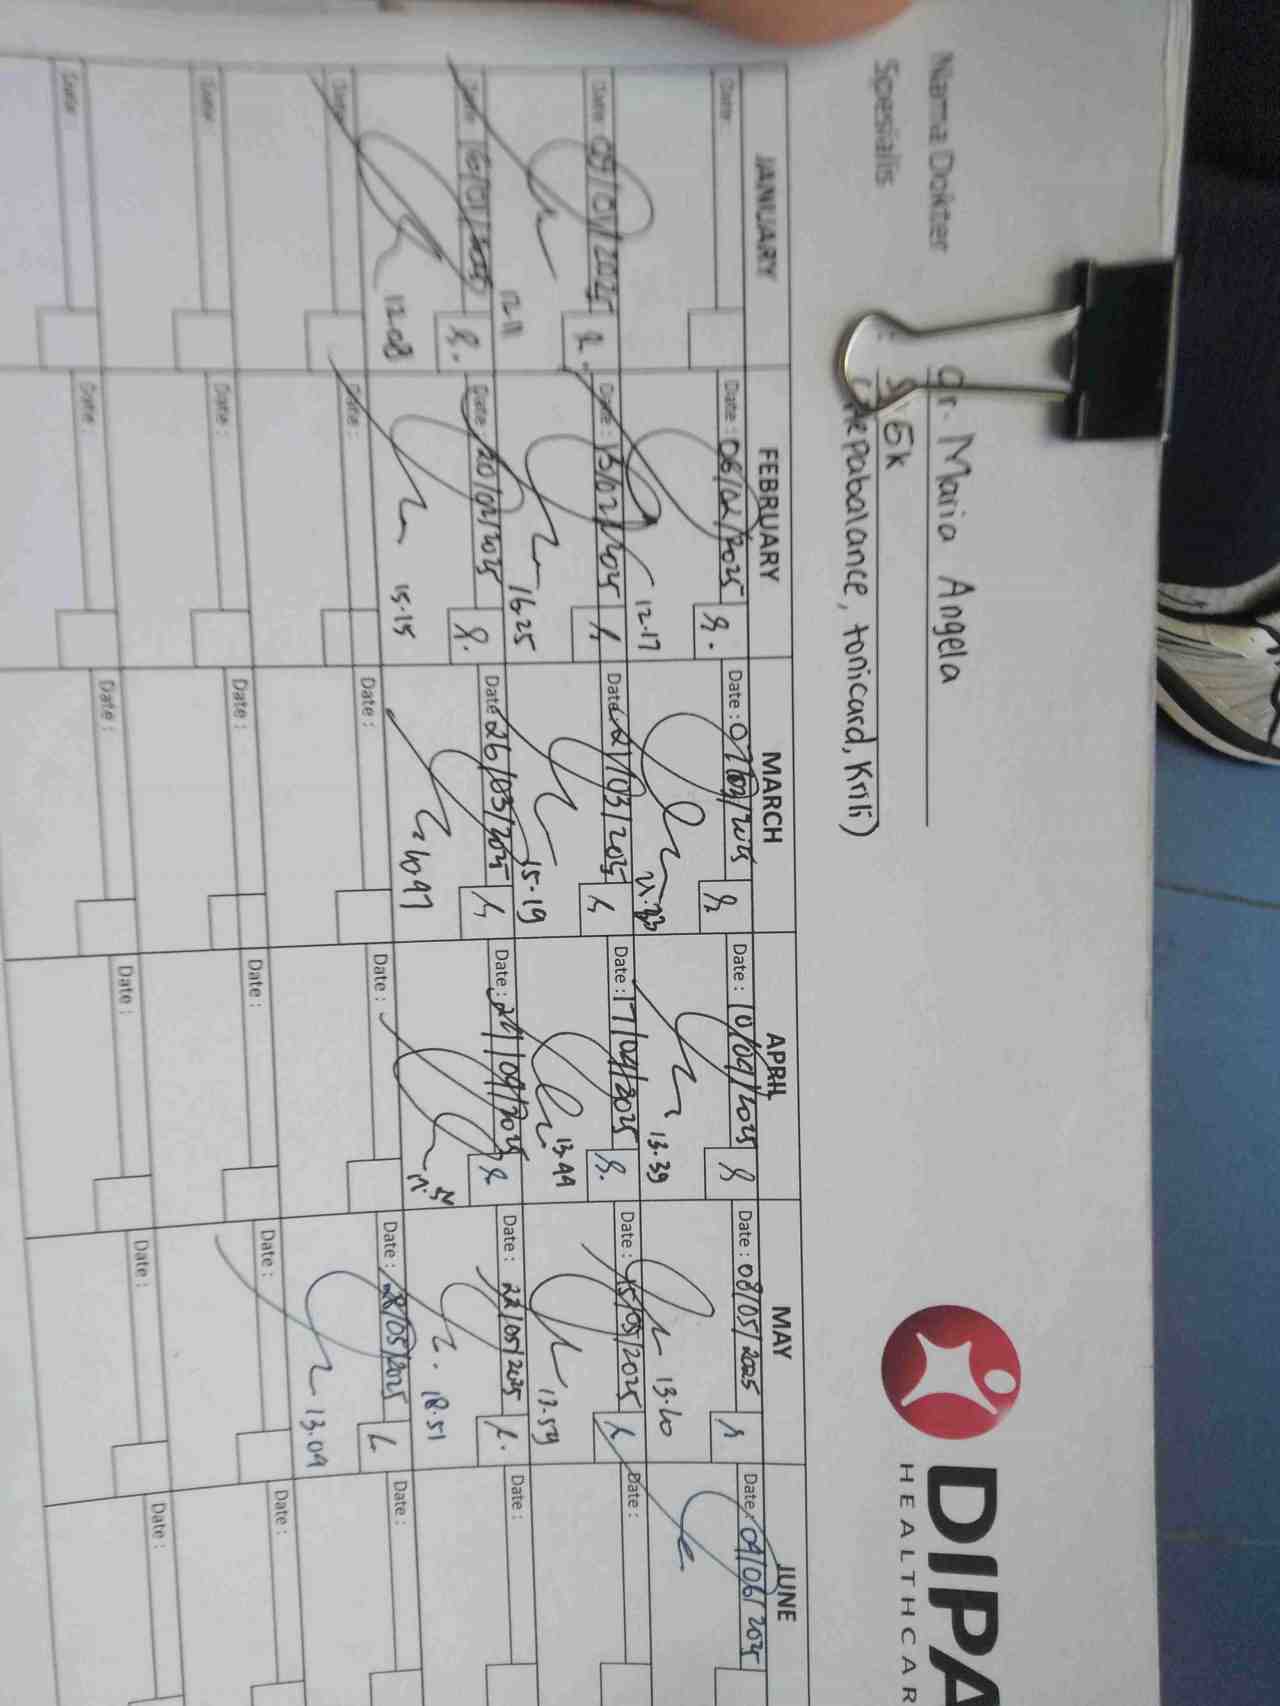 Nama Dokter : dr. Maria Angela
Spesialis : Sp Gk
(Depabalance, tonicard, Krili)
DIPA
HEALTHCAR
JANUARY FEBRUARY MARCH APRIL MAY JUNE
Date: Date: 06/02/2025 Date: 07/03/2025 Date: 10/04/2025 Date: 08/05/2025 Date: 04/06/2025
12.17 21.33 13.39 13.10
Date: 09/01/2025 Date: 13/02/2025 Date: 21/03/2025 Date: 17/04/2025 Date: 15/05/2025 Date:
12.11 16.25 15.19 13.44 13.59
Date: 16/01/2025 Date: 20/02/2025 Date: 26/03/2025 Date: 24/04/2025 Date: 22/05/2025 Date:
12.08 15.15 18.51
Date: Date: Date: Date: Date: 28/05/2025 Date:
13.09
Date: Date: Date: Date: Date: Date:
Date: Date: Date: Date: Date: Date: